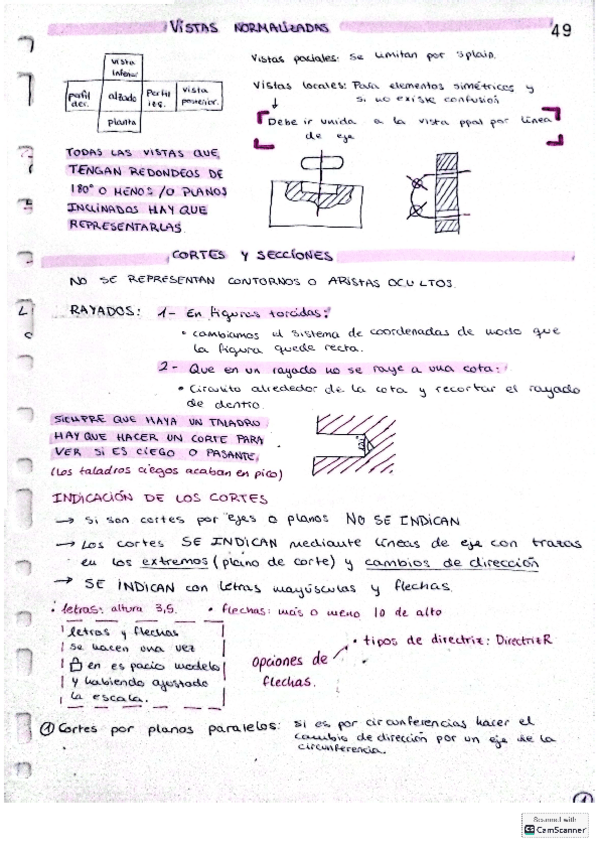 VISTAS NORMALIZADAS
49
vista inferior
perfil der.
alzado
Perfil izq.
vista posterior.
planta
Vistas parciales: Se limitan por splain.
Vistas locales: Para elementos simétricos y
si no existe confusión
Debe ir unida a la vista ppal por línea
de eje
TODAS LAS VISTAS QUE
TENGAN REDONDEOS DE
180° O MENOS /O PLANOS
INCLINADOS HAY QUE
REPRESENTARLAS.
CORTES Y SECCIONES
NO SE REPRESENTAN CONTORNOS O ARISTAS OCULTOS.
RAYADOS: 1- En figuras torcidas:
• cambiamos el sistema de coordenadas de modo que
la figura quede recta.
2- Que en un rayado no se raye a una cota:
• Circulito alrededor de la cota y recortar el rayado
de dentro.
SIEMPRE QUE HAYA UN TALADRO
HAY QUE HACER UN CORTE PARA
VER SI ES CIEGO O PASANTE.
(Los taladros ciegos acaban en pico)
INDICACIÓN DE LOS CORTES
→ Si son cortes por ejes o planos NO SE INDICAN
→ Los cortes SE INDICAN mediante líneas de eje con trazas
en los extremos (plano de corte) y cambios de dirección
→ SE INDICAN con letras mayúsculas y flechas.
• letras: altura 3,5. • flechas: más o menos 10 de alto
letras y flechas
se hacen una vez
en espacio modelo
y habiendo ajustado
la escala.
opciones de
flechas.
• tipos de directriz: DirectrizR
•
① Cortes por planos paralelos: si es por circunferencias hacer el
cambio de dirección por un eje de la
circunferencia.
Scanned with
CS CamScanner